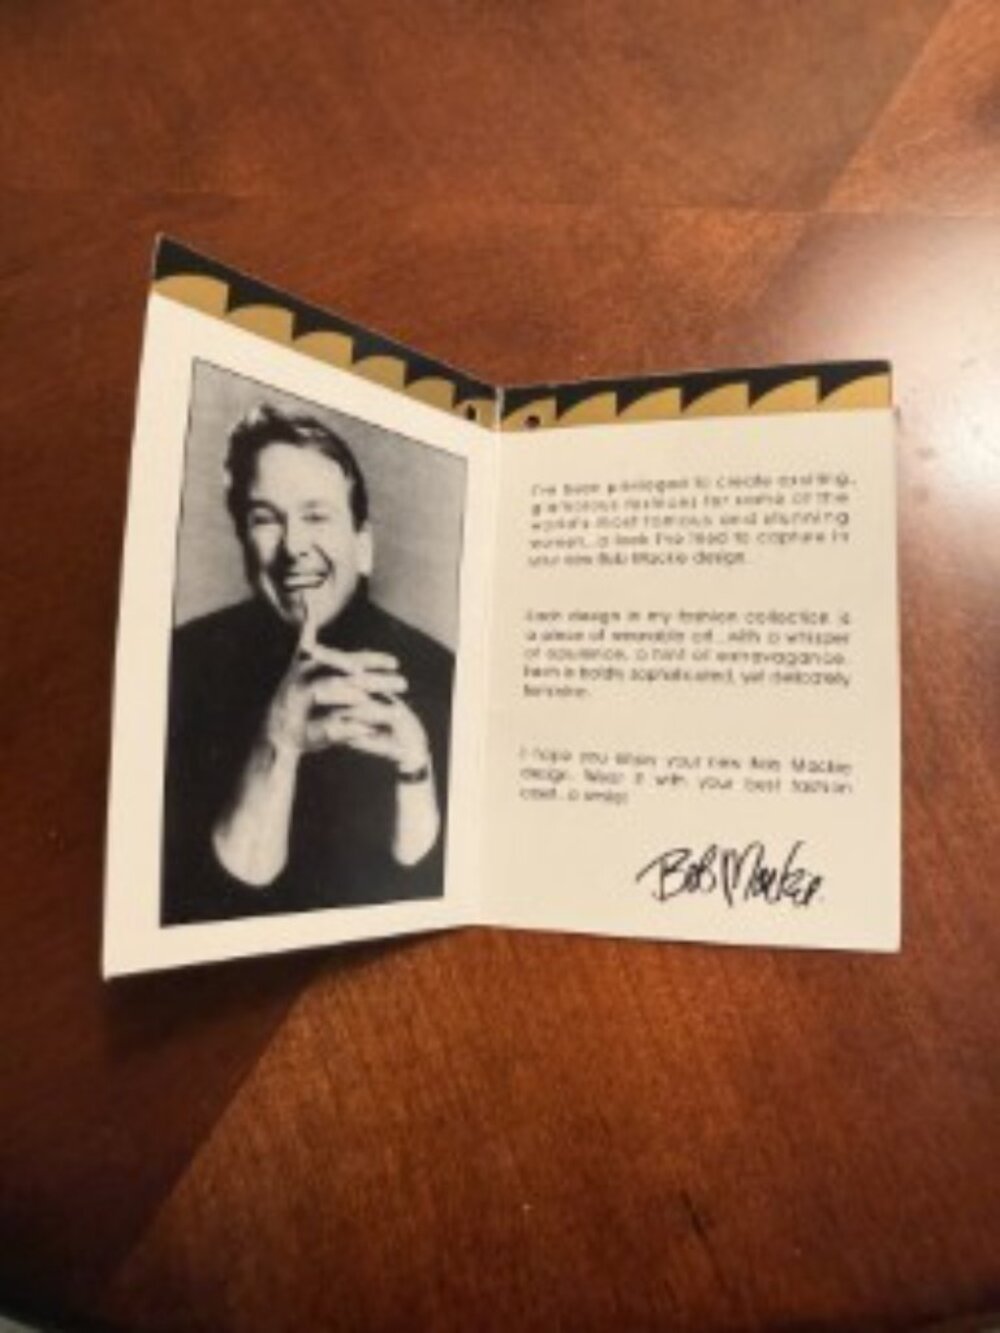 I've been privileged to create exciting,
glamorous fashions for some of the
world's most famous and stunning
women...a look I've tried to capture in
your new Bob Mackie design.
Each design in my fashion collection is
a piece of wearable art...with a whisper
of opulence, a hint of extravagance.
sophisticated, yet delicately
feminine.
I hope you enjoy your new Bob Mackie
design. Wear it with your best fashion
asset...a smile!
Bob Mackie